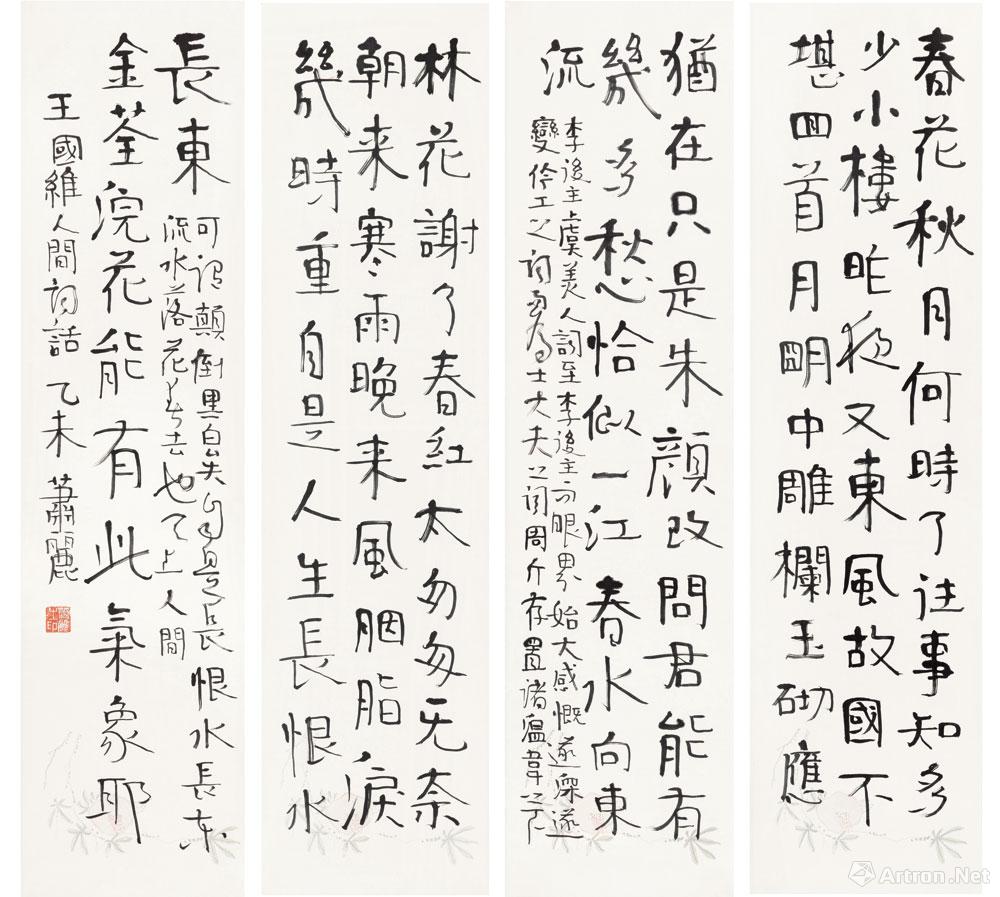 春花秋月何時了往事知多
少小樓昨夜又東風故國不
堪回首月明中雕欄玉砌應
猶在只是朱顏改問君能有
幾多愁恰似一江春水向東
流
李後主虞美人詞至李後主而眼界始大感慨遂深遂
變伶工之词而为士大夫之词周介存置諸溫韋之下
林花謝了春紅太匆匆无奈
朝来寒雨晚来風胭脂淚
幾時重自是人生長恨水
長東
可谓顛倒黑白矣自是長恨水長东
流水落花春去也天上人間
金荃浣花能有此氣象耶
王國維人間词話 乙未 蕭麗
Artron.Net